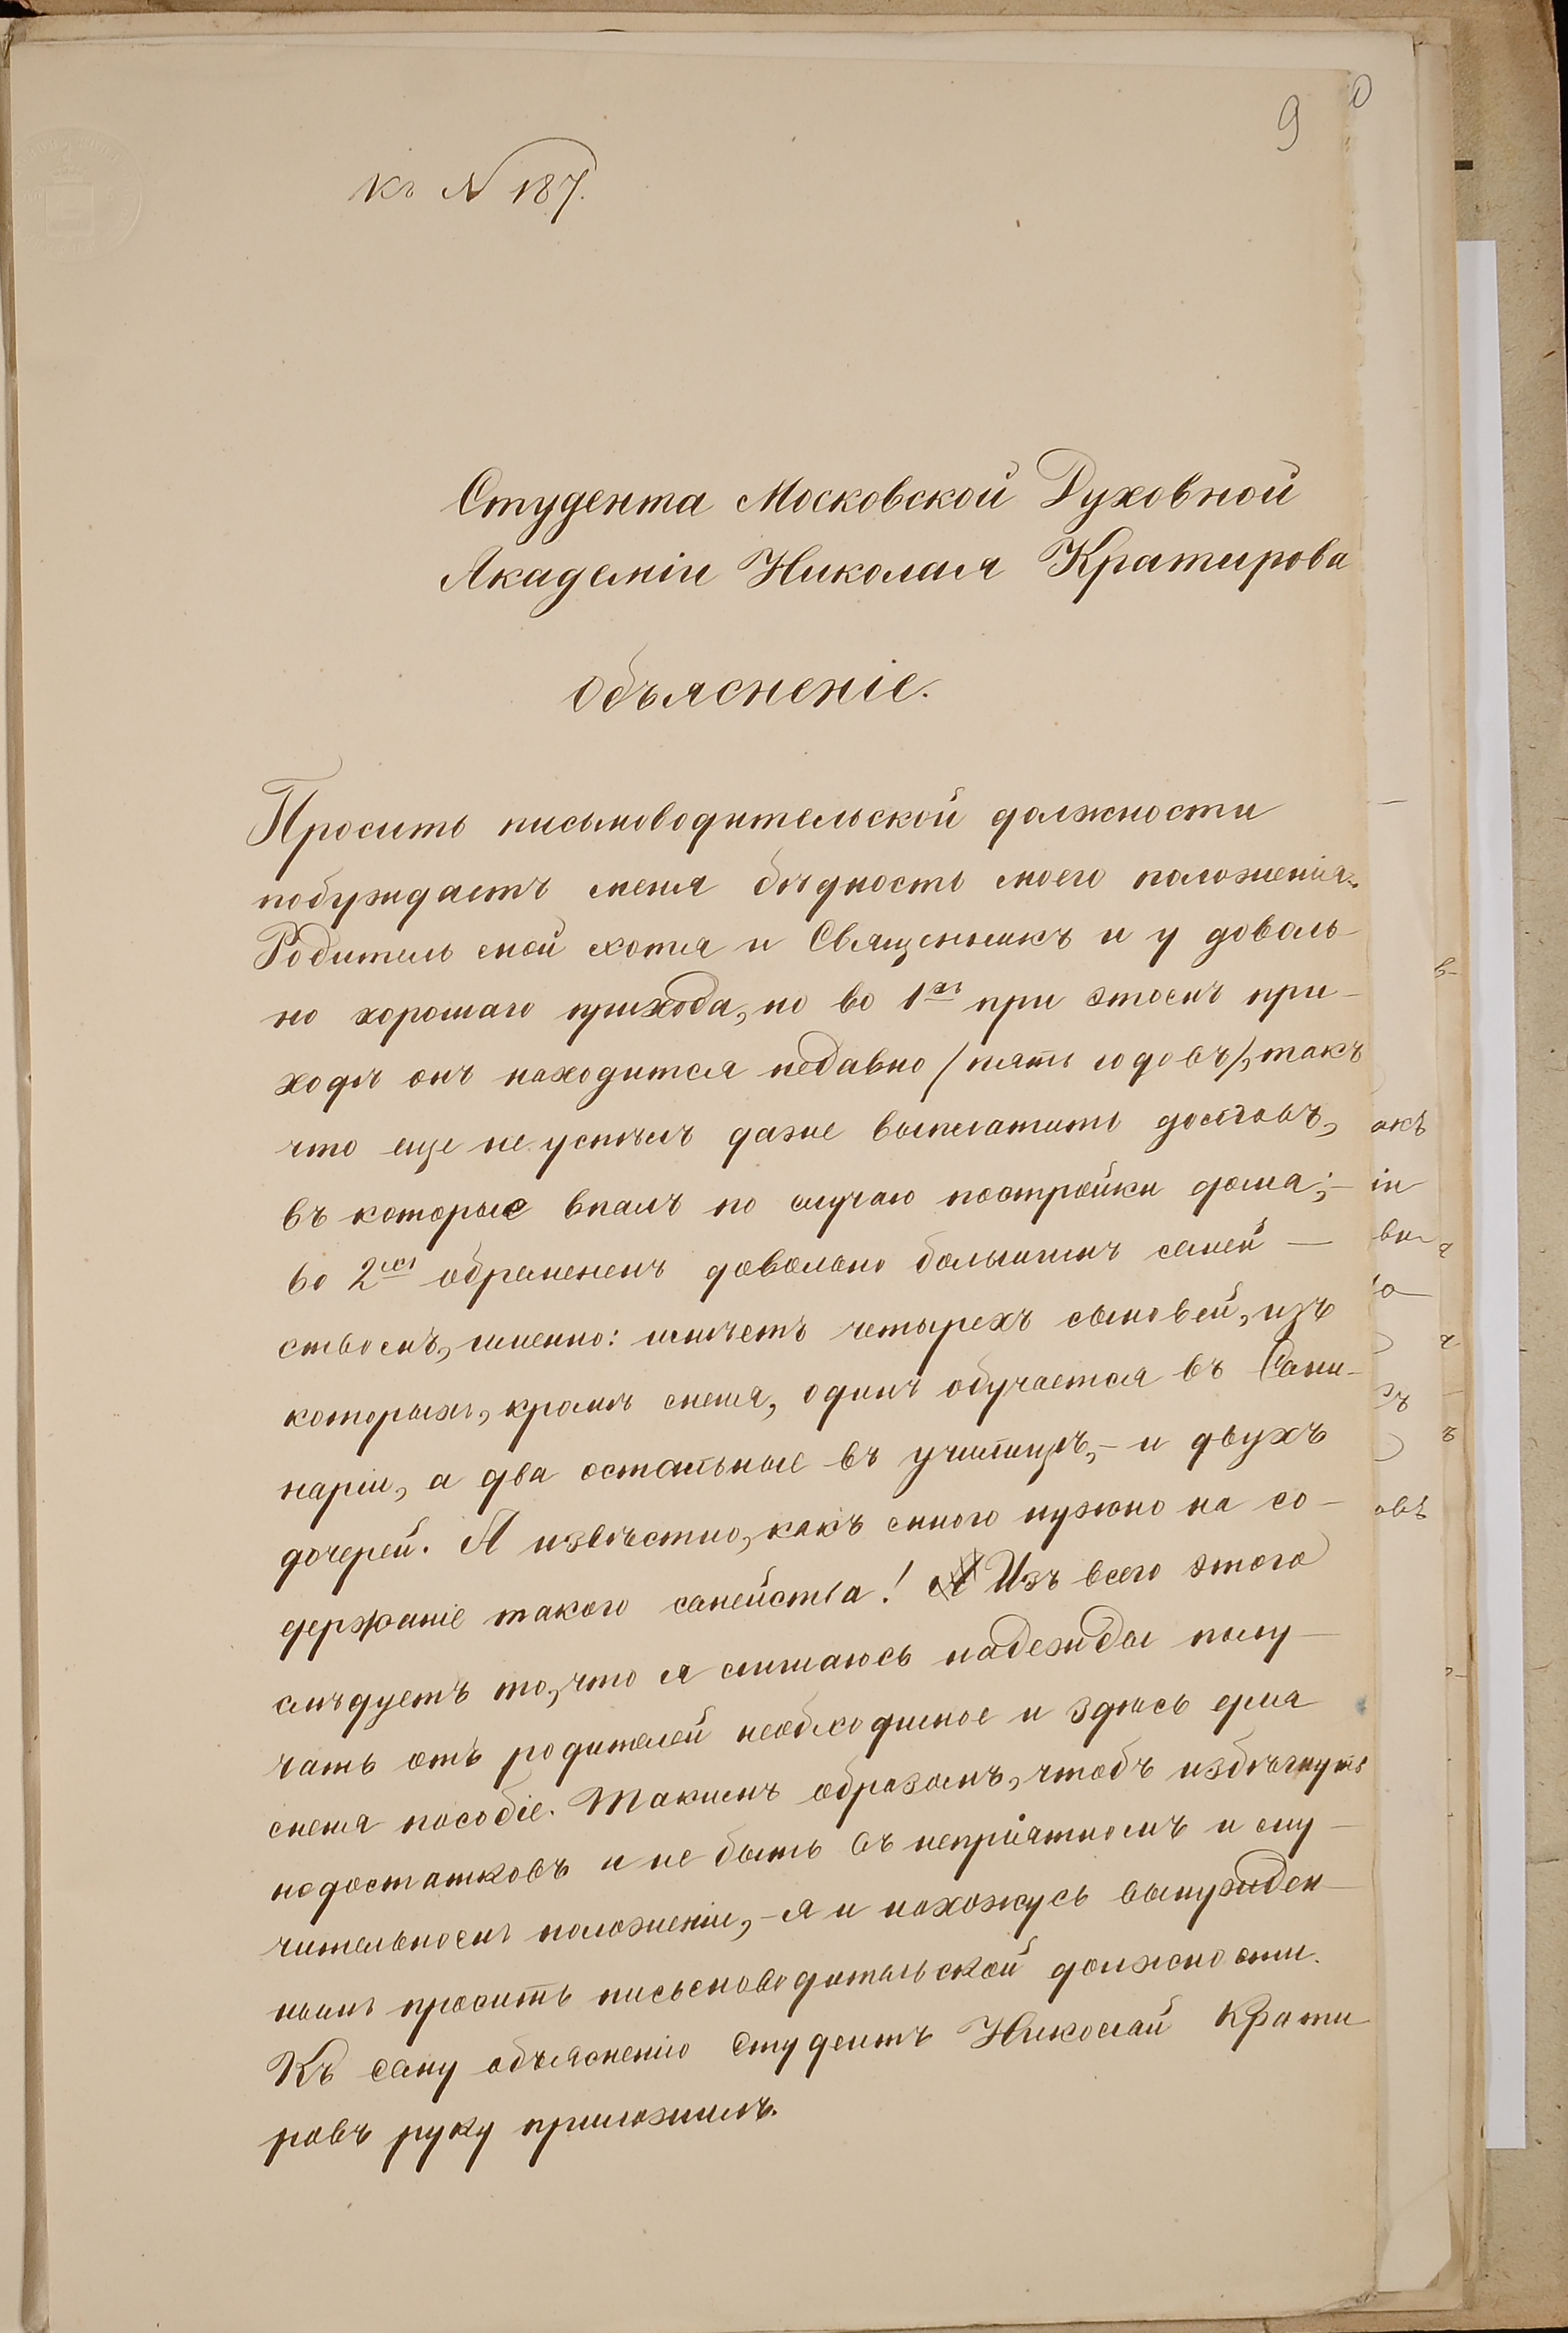 9
Къ № 187.
Студента Московской Духовной
Академіи Николая Кратирова
Объясненіе.
Просить письмоводительской должности
побуждаетъ меня бѣдность моего положенія.
Родитель мой хотя и Священникъ и у доволь-
но хорошаго прихода, но во 1хъ при этомъ при-
ходѣ онъ находится недавно (пять годовъ), такъ
что еще не успѣлъ даже выплатить долговъ,
въ которые впалъ по случаю постройки дома; -
во 2хъ обремененъ довольно большимъ семей-
ствомъ, именно: имѣетъ четырехъ сыновей, изъ
которыхъ, кромѣ меня, одинъ обучается въ Семи-
наріи, а два остальные въ училищѣ, - и двухъ
дочерей. А извѣстно, какъ много нужно на со-
держаніе такого семейства! Изъ всего этого
слѣдуетъ то, что я лишаюсь надежды полу-
чать отъ родителей необходимое и здѣсь для
меня пособіе. Такимъ образомъ, чтобъ избѣгнуть
недостатковъ и не быть въ непріятномъ и му-
чительномъ положеніи, - я и нахожусь вынужден-
нымъ просить письмоводительской должности.
Къ сему объясненію Студентъ Николай Крати
ровъ руку приложилъ.
акъ
іи
овъ